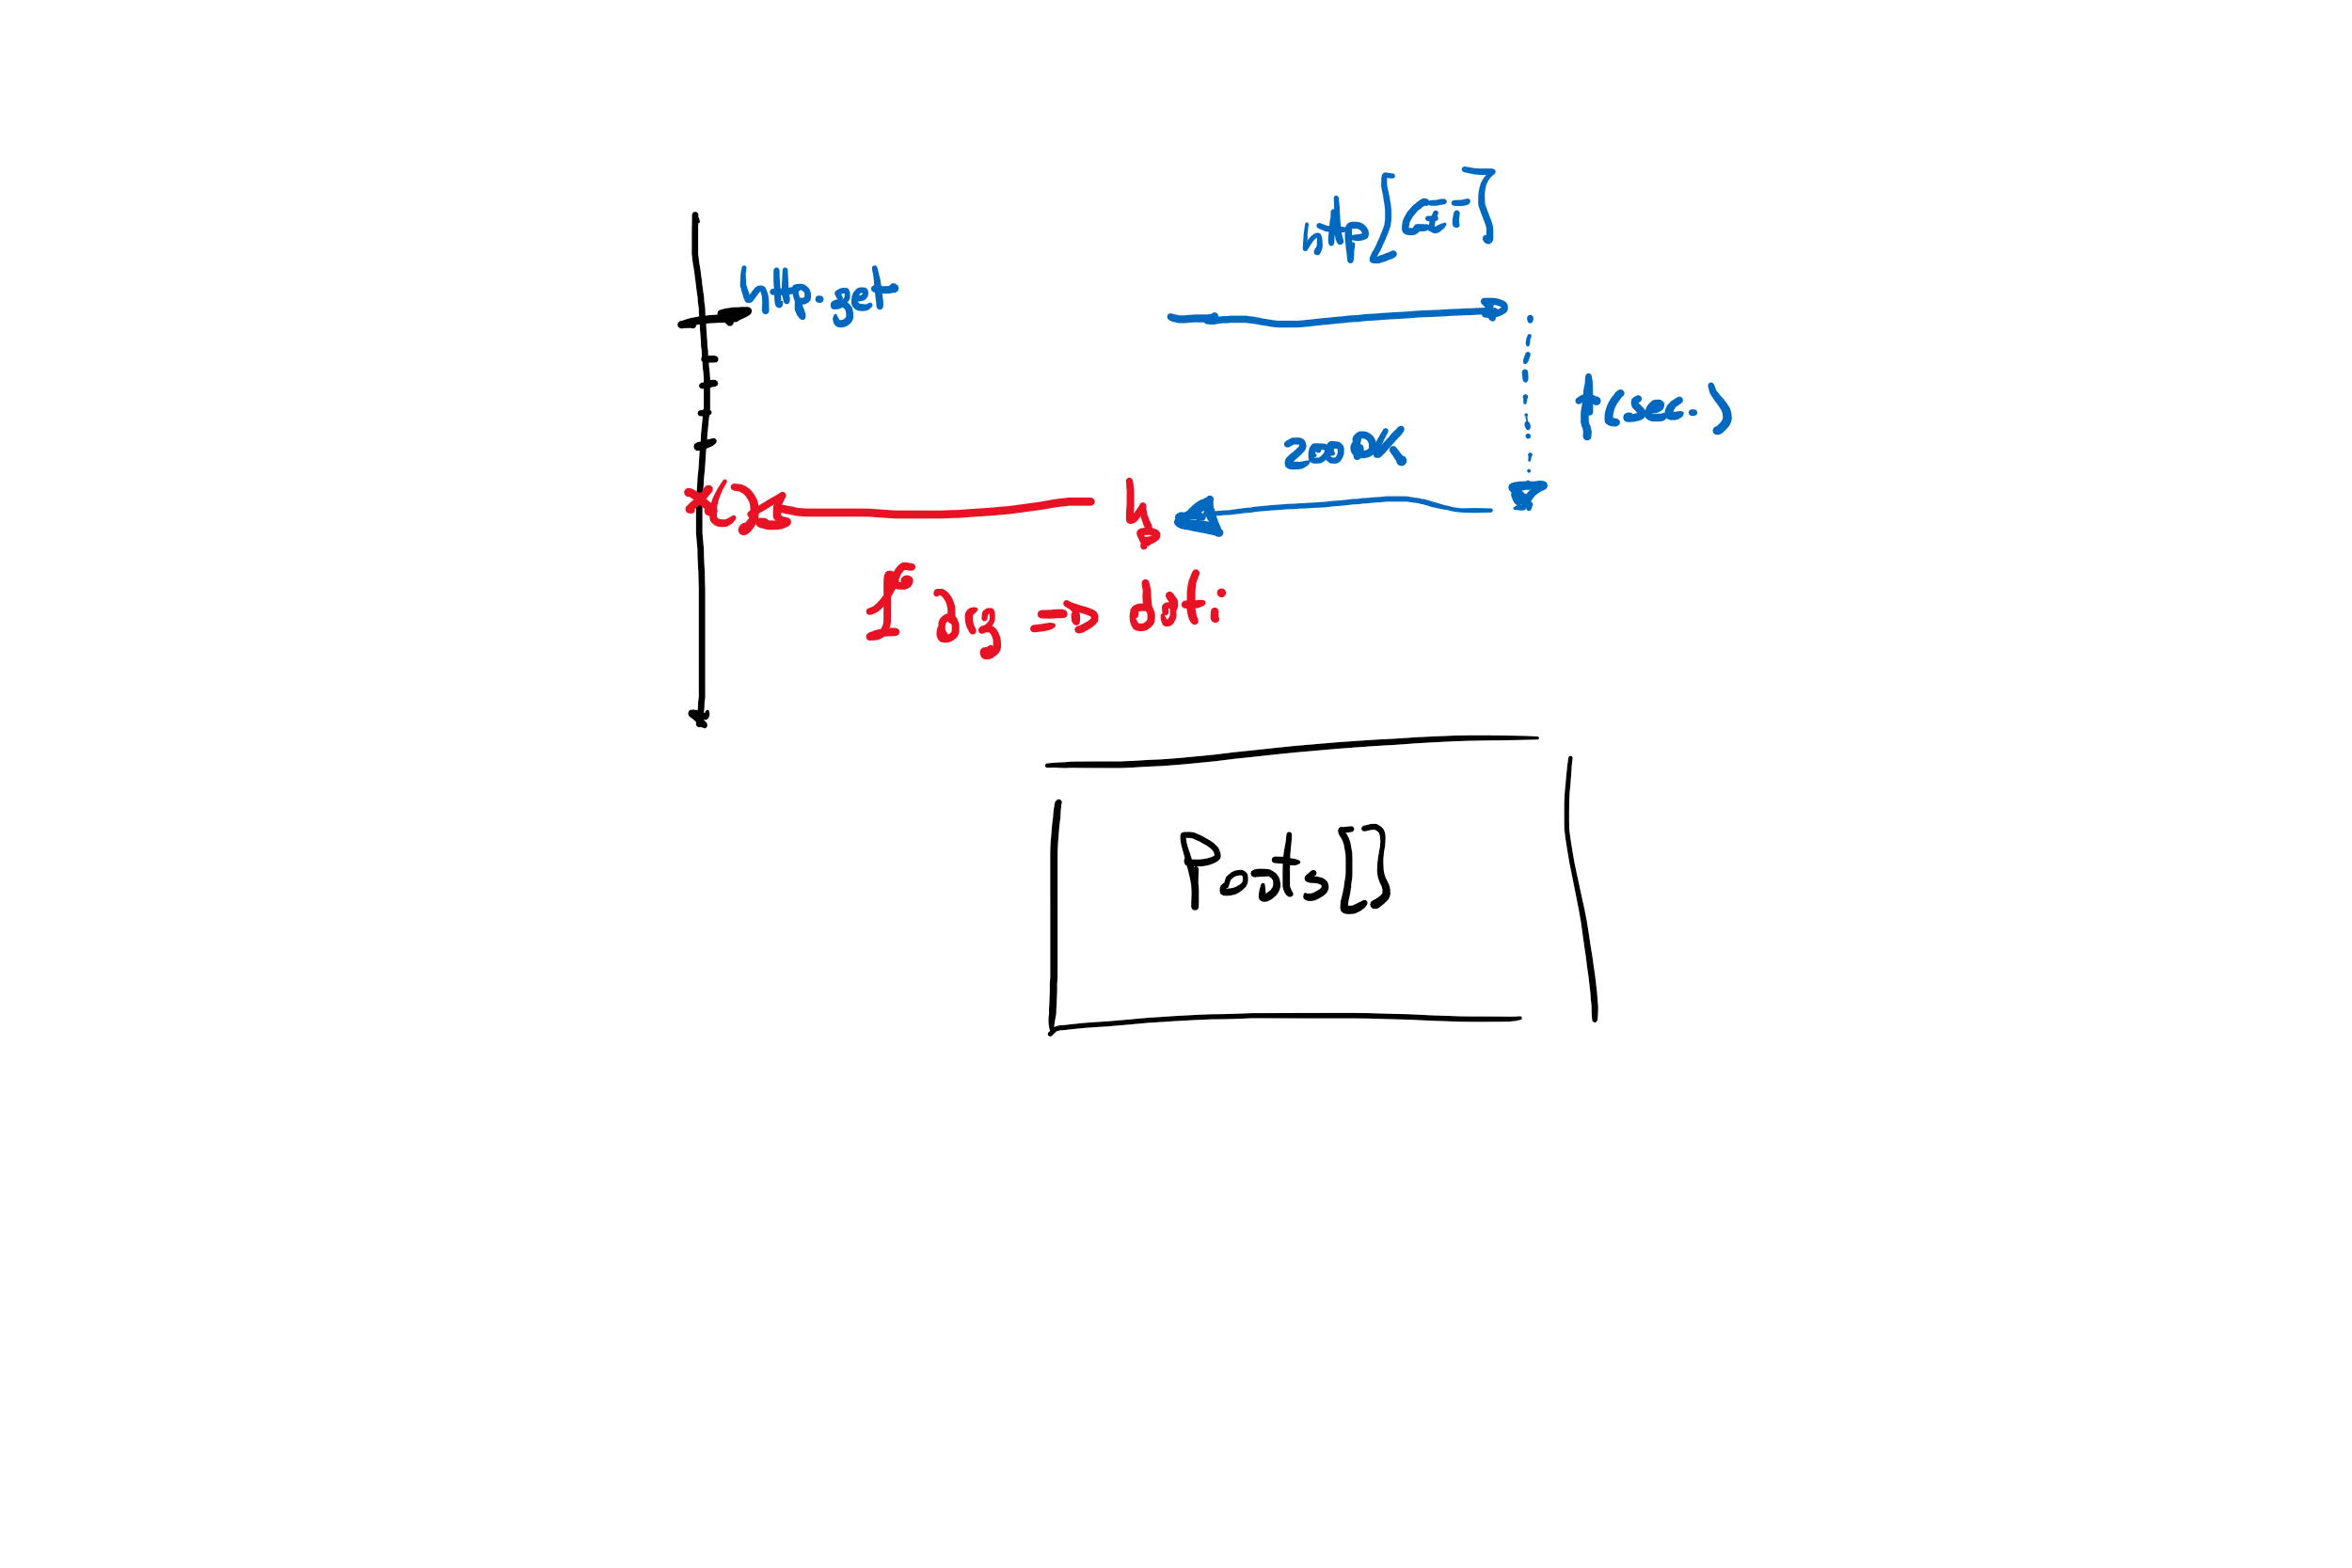 http[GET]
http.get
t(sec.)
200OK
x()
h
=> dati
Posts[]